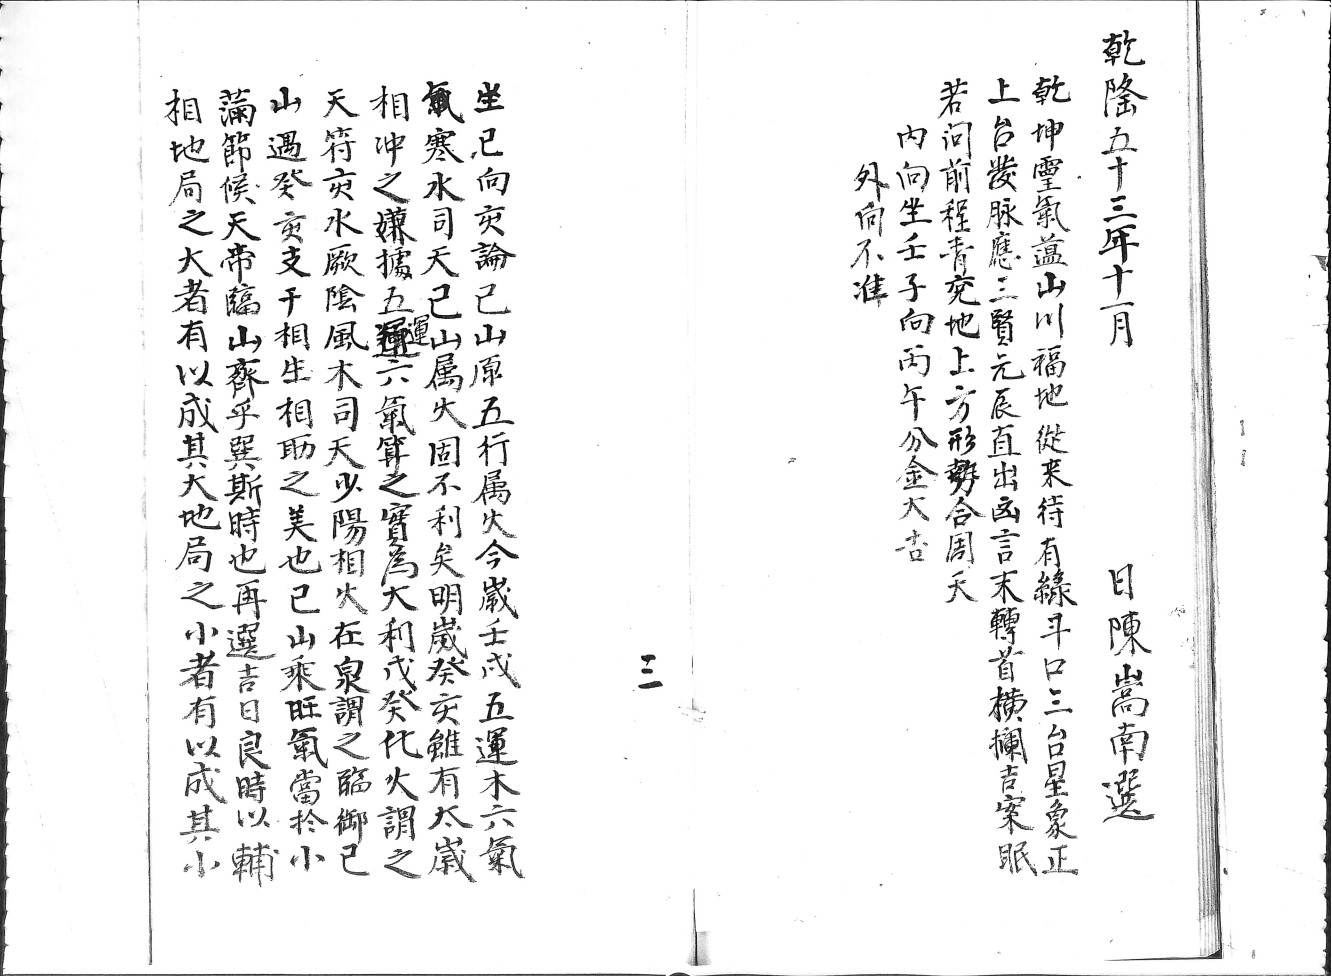 乾隆五十三年十一月　日陳嵩南選
乾坤靈氣蘊山川福地從来待有緣斗口三台星象正
上台發脉應三賢元辰直出凶言末轉首橫攔吉案眠
若问前程青兖地上方形勢合周天
內向坐壬子向丙午分金大吉
外向不准
三
坐巳向亥論巳山原五行属火今歲壬戌五運木六氣
氣寒水司天巳山属火固不利矣明歲癸亥雖有太歲
相冲之嫌據五運六氣算之實為大利戊癸化火謂之
運
天符亥水厥陰風木司天少陽相火在泉謂之臨御巳
山遇癸亥支干相生相助之美也巳山乘旺氣當於小
滿節候天帝臨山齊乎巽斯時也再選吉日良時以輔
相地局之大者有以成其大地局之小者有以成其小